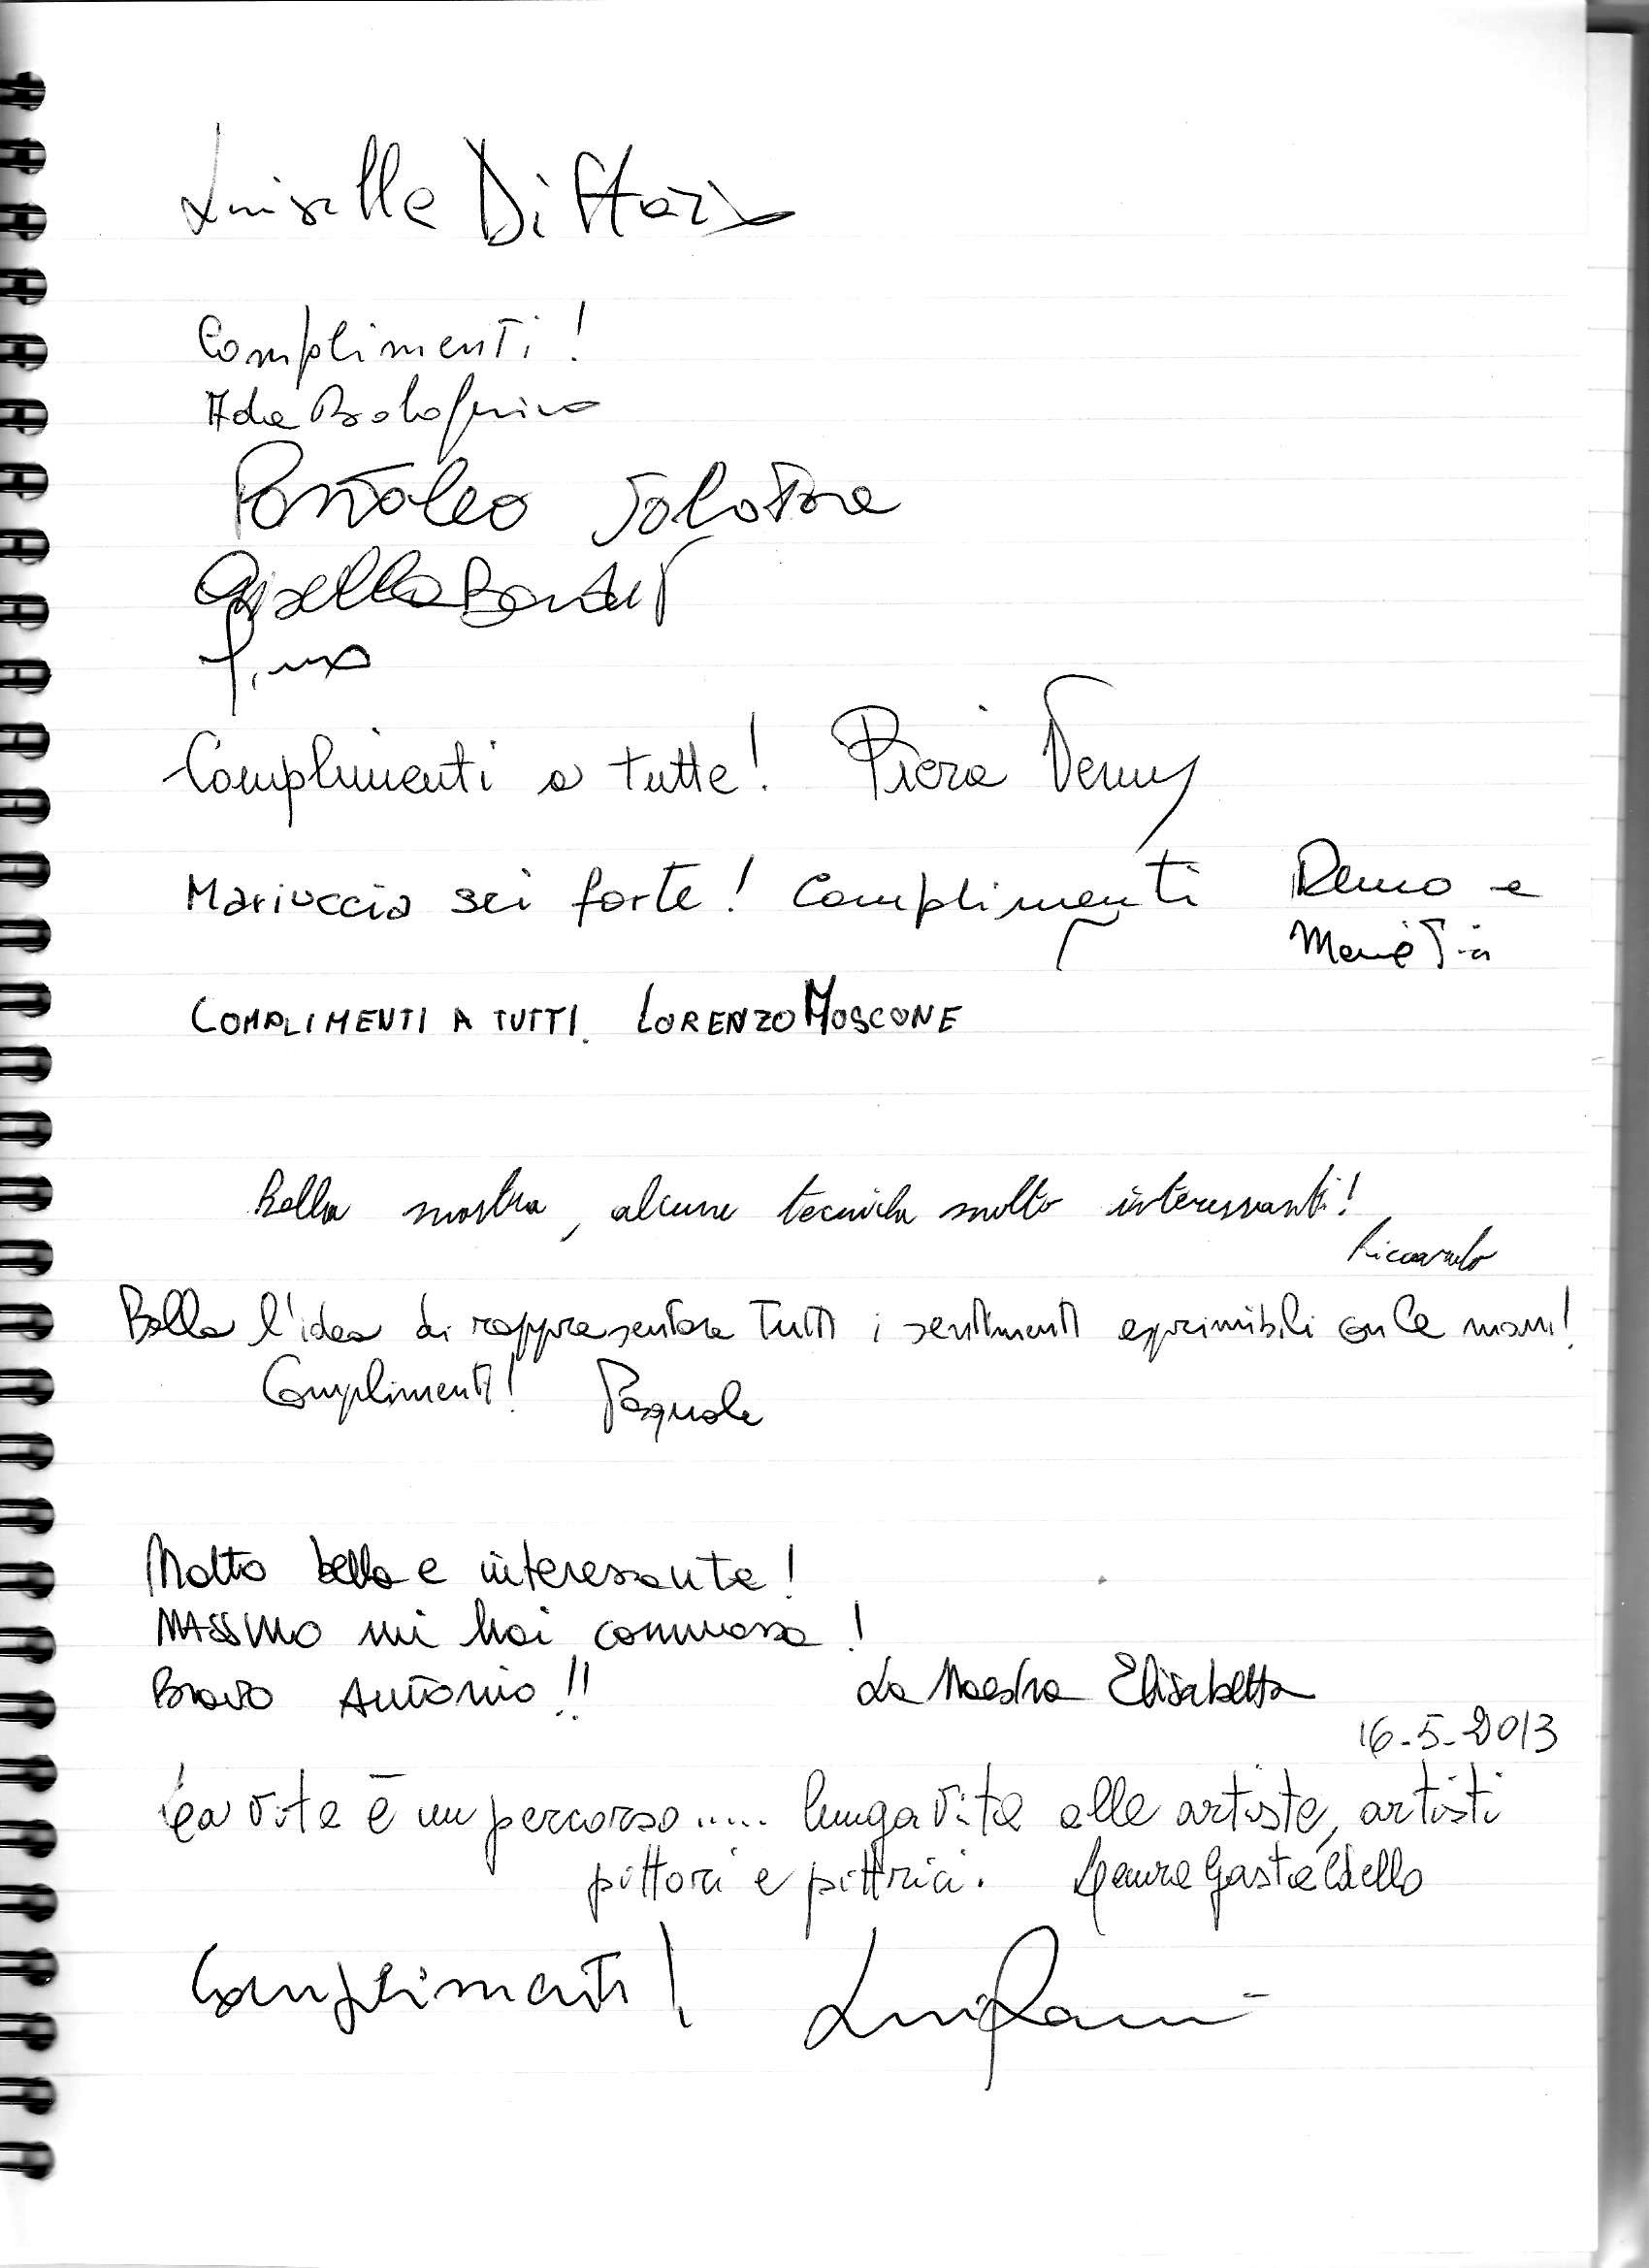 Luisella Di
Complimenti!
Ada Bolognino
Portoleo Salvatore
Gisella
Complimenti a tutte! Piera
Mariuccia sei forte! Complimenti Remo e
COMPLIMENTI A TUTTI. LORENZO MOSCONE
Bella mostra, alcune tecniche molto interessanti!
Riccardo
Bella l'idea di rappresentare tutti i sentimenti esprimibili con le mani!
Complimenti! Pasquale
Molto bella e interessante!
MASSIMO mi hai commossa!
Bravo Antonio!! La Maestra Elisabetta
16-5-2013
La vita è un percorso..... lunga vita alle artiste, artisti
pittori e pittrici. Laura Gastaldello
Complimenti!